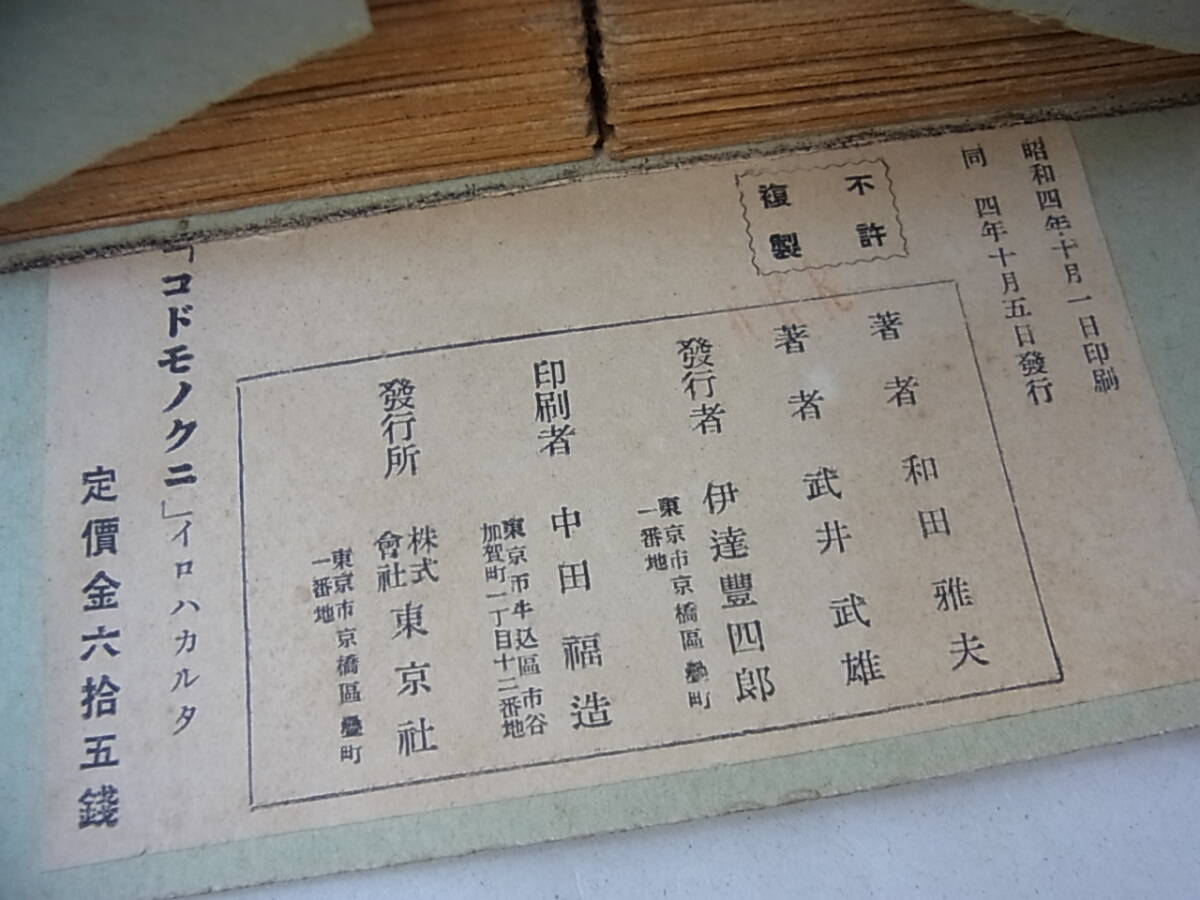 昭和四年十月一日印刷
同 四年十月五日發行
不許
複製
著者 和田雅夫
著者 武井武雄
發行者 伊達豐四郎
東京市京橋區疊町
一番地
印刷者 中田福造
東京市牛込區市谷
加賀町一丁目十二番地
發行所 株式會社 東京社
東京市京橋區疊町
一番地
「コドモノクニ」イロハカルタ
定價金六拾五錢